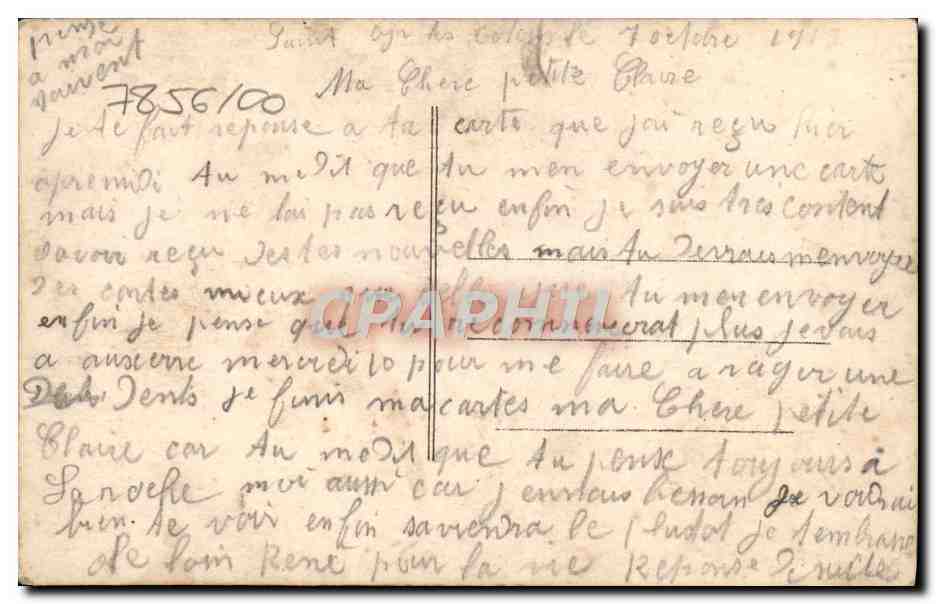 pense
a moi
souvent
7 octobre 191
7856/00
Ma Chere petite Claire
je te fait reponse a ta carte que jai reçu hier
apremidi tu medit que tu men envoyer une carte
mais je ne lai pas reçu enfin je suis tres content
davoir reçu destes nouvelles mais tu devrais menvoyer
des cartes mieux que celle que tu men envoyer
enfin je pense que tu ne recommencerat plus je vais
a auxerre mercredi 10 pour me faire aracher une
Dents je finis ma cartes ma Chere petite
Claire car tu medit que tu penx toujours a
Laroche moi aussi car jennais bessoin je voudrai
bien te voir enfin saviendra le plutot je tembrasse
de loin René pour la vie Reponse de suite
CPAPHIL